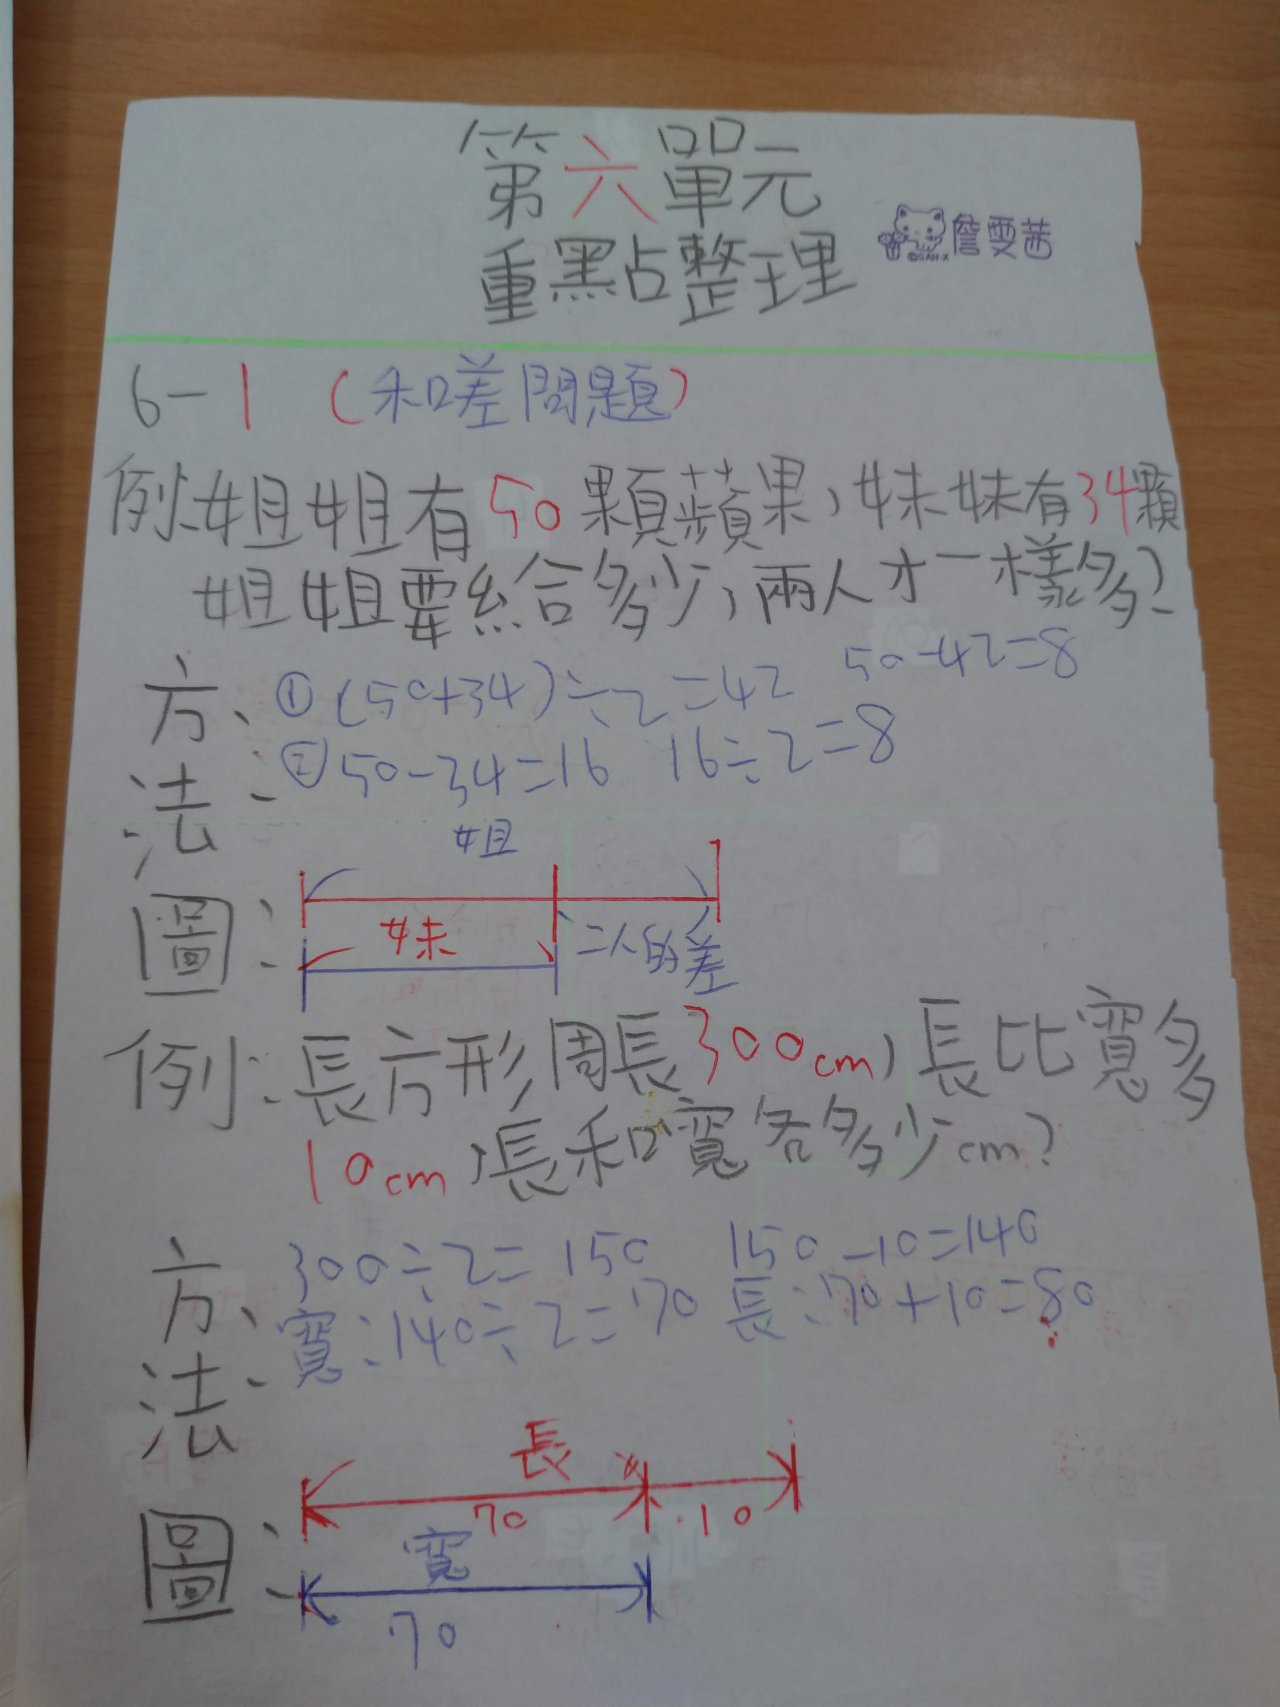 第六單元
重點整理
©SAN-X
詹雯茜
6-1 (和差問題)
例:姐姐有50顆蘋果,妹妹有34顆
姐姐要給合多少,兩人才一樣多?
方法:
①(50+34)÷2=42 50-42=8
②50-34=16 16÷2=8
圖:
姐
妹
二人的差
例:長方形周長300cm,長比寬多
10cm,長和寬各多少cm?
方法:
300÷2=150 150-10=140
寬:140÷2=70 長:70+10=80
圖:
長
70 10
寬
70